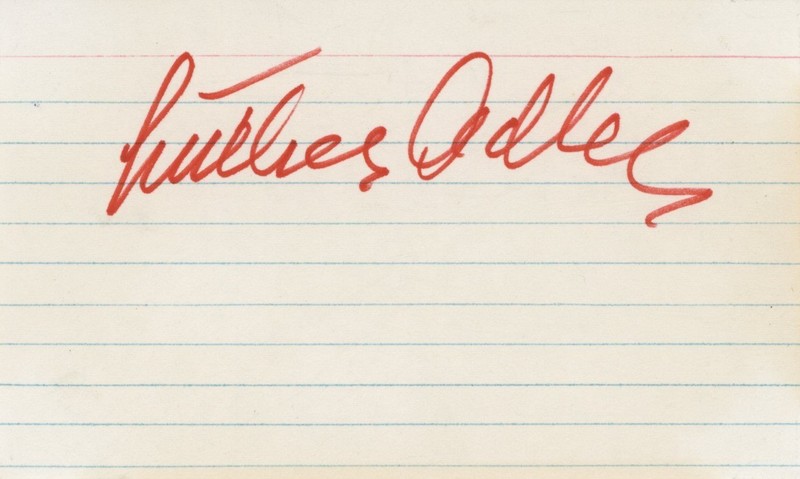 Luther Adler